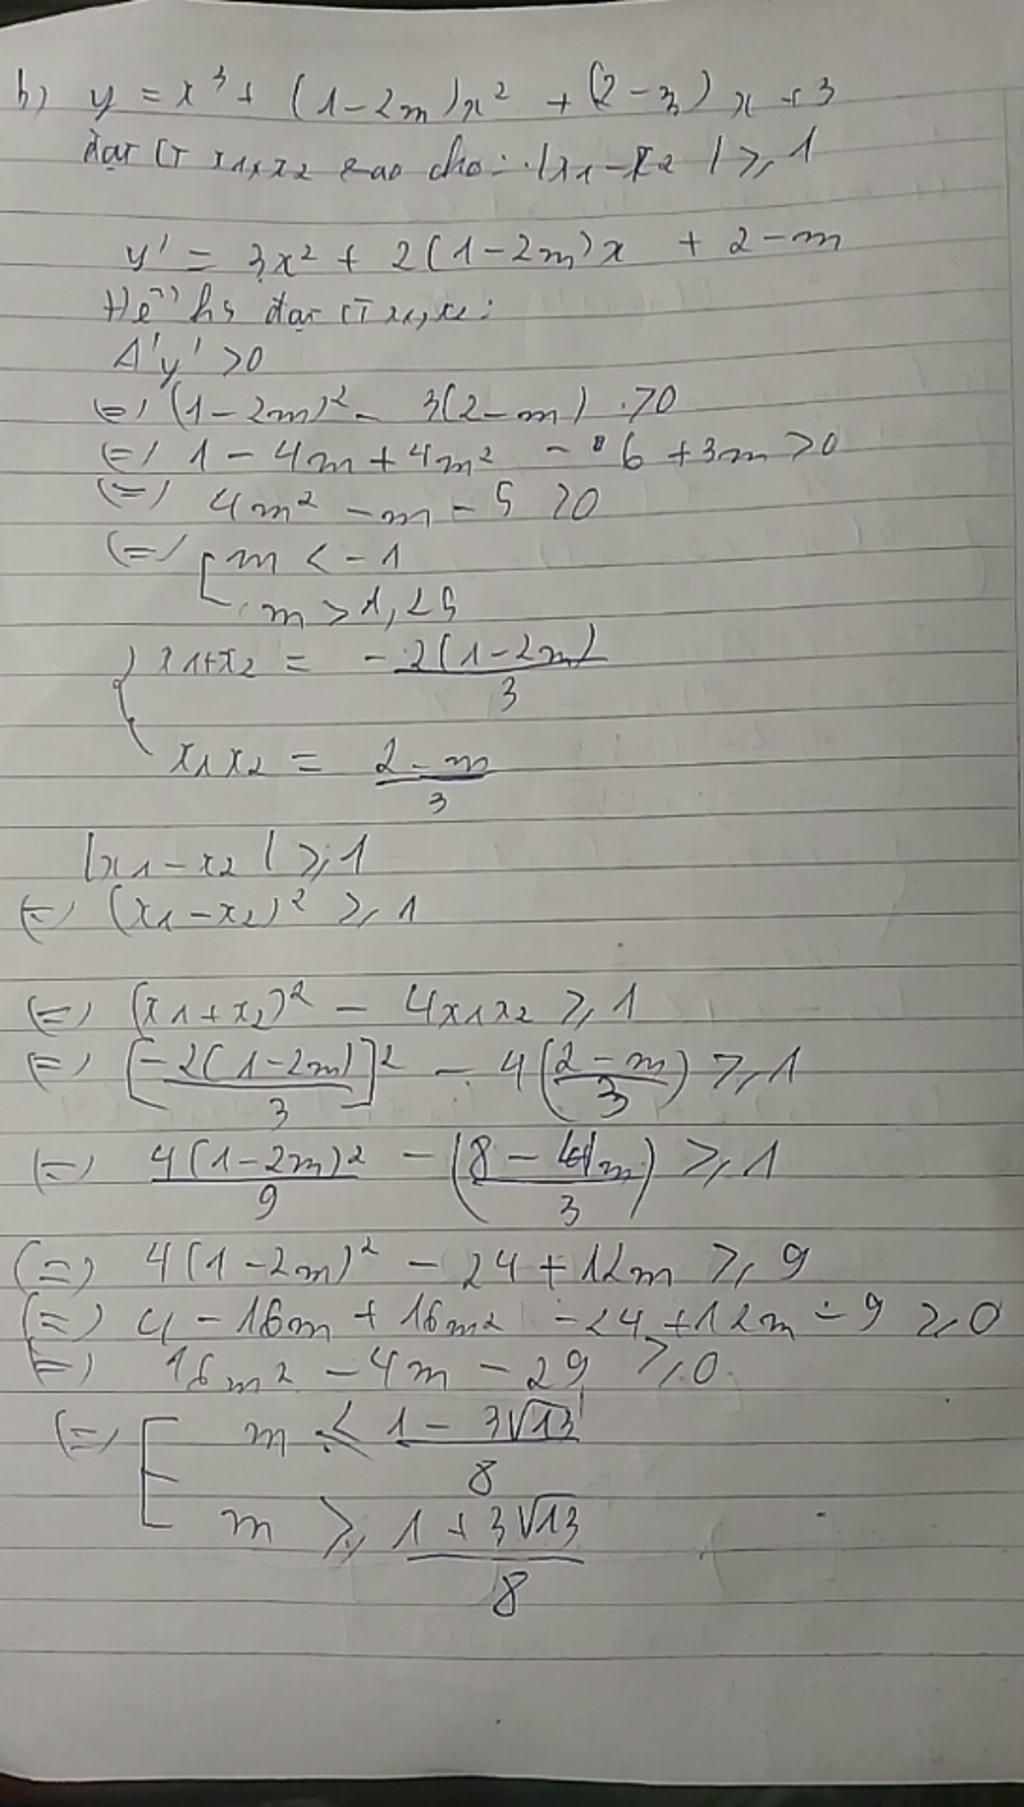 b) y = x³ + (1-2m)x² + (2-3)x + 3
đạt CT x1, x2 sao cho: |x1-x2| ≥ 1
y' = 3x² + 2(1-2m)x + 2-m
hs đạt CT x1, x2:
Δ'y' > 0
(=) (1-2m)² - 3(2-m) > 0
(=) 1 - 4m + 4m² - 6 + 3m > 0
(=) 4m² - m - 5 > 0
(=) [ m < -1
m > 1,25
{ x1+x2 = -2(1-2m)/3
x1x2 = (2-m)/3
|x1-x2| ≥ 1
(=) (x1-x2)² ≥ 1
(=) (x1+x2)² - 4x1x2 ≥ 1
(=) [-2(1-2m)/3]² - 4((2-m)/3) ≥ 1
(=) 4(1-2m)²/9 - ((8-4m)/3) ≥ 1
(=) 4(1-2m)² - 24 + 12m ≥ 9
(=) 4 - 16m + 16m² - 24 + 12m - 9 ≥ 0
(=) 16m² - 4m - 29 ≥ 0
(=) [ m ≤ (1 - 3√13)/8
m ≥ (1 + 3√13)/8